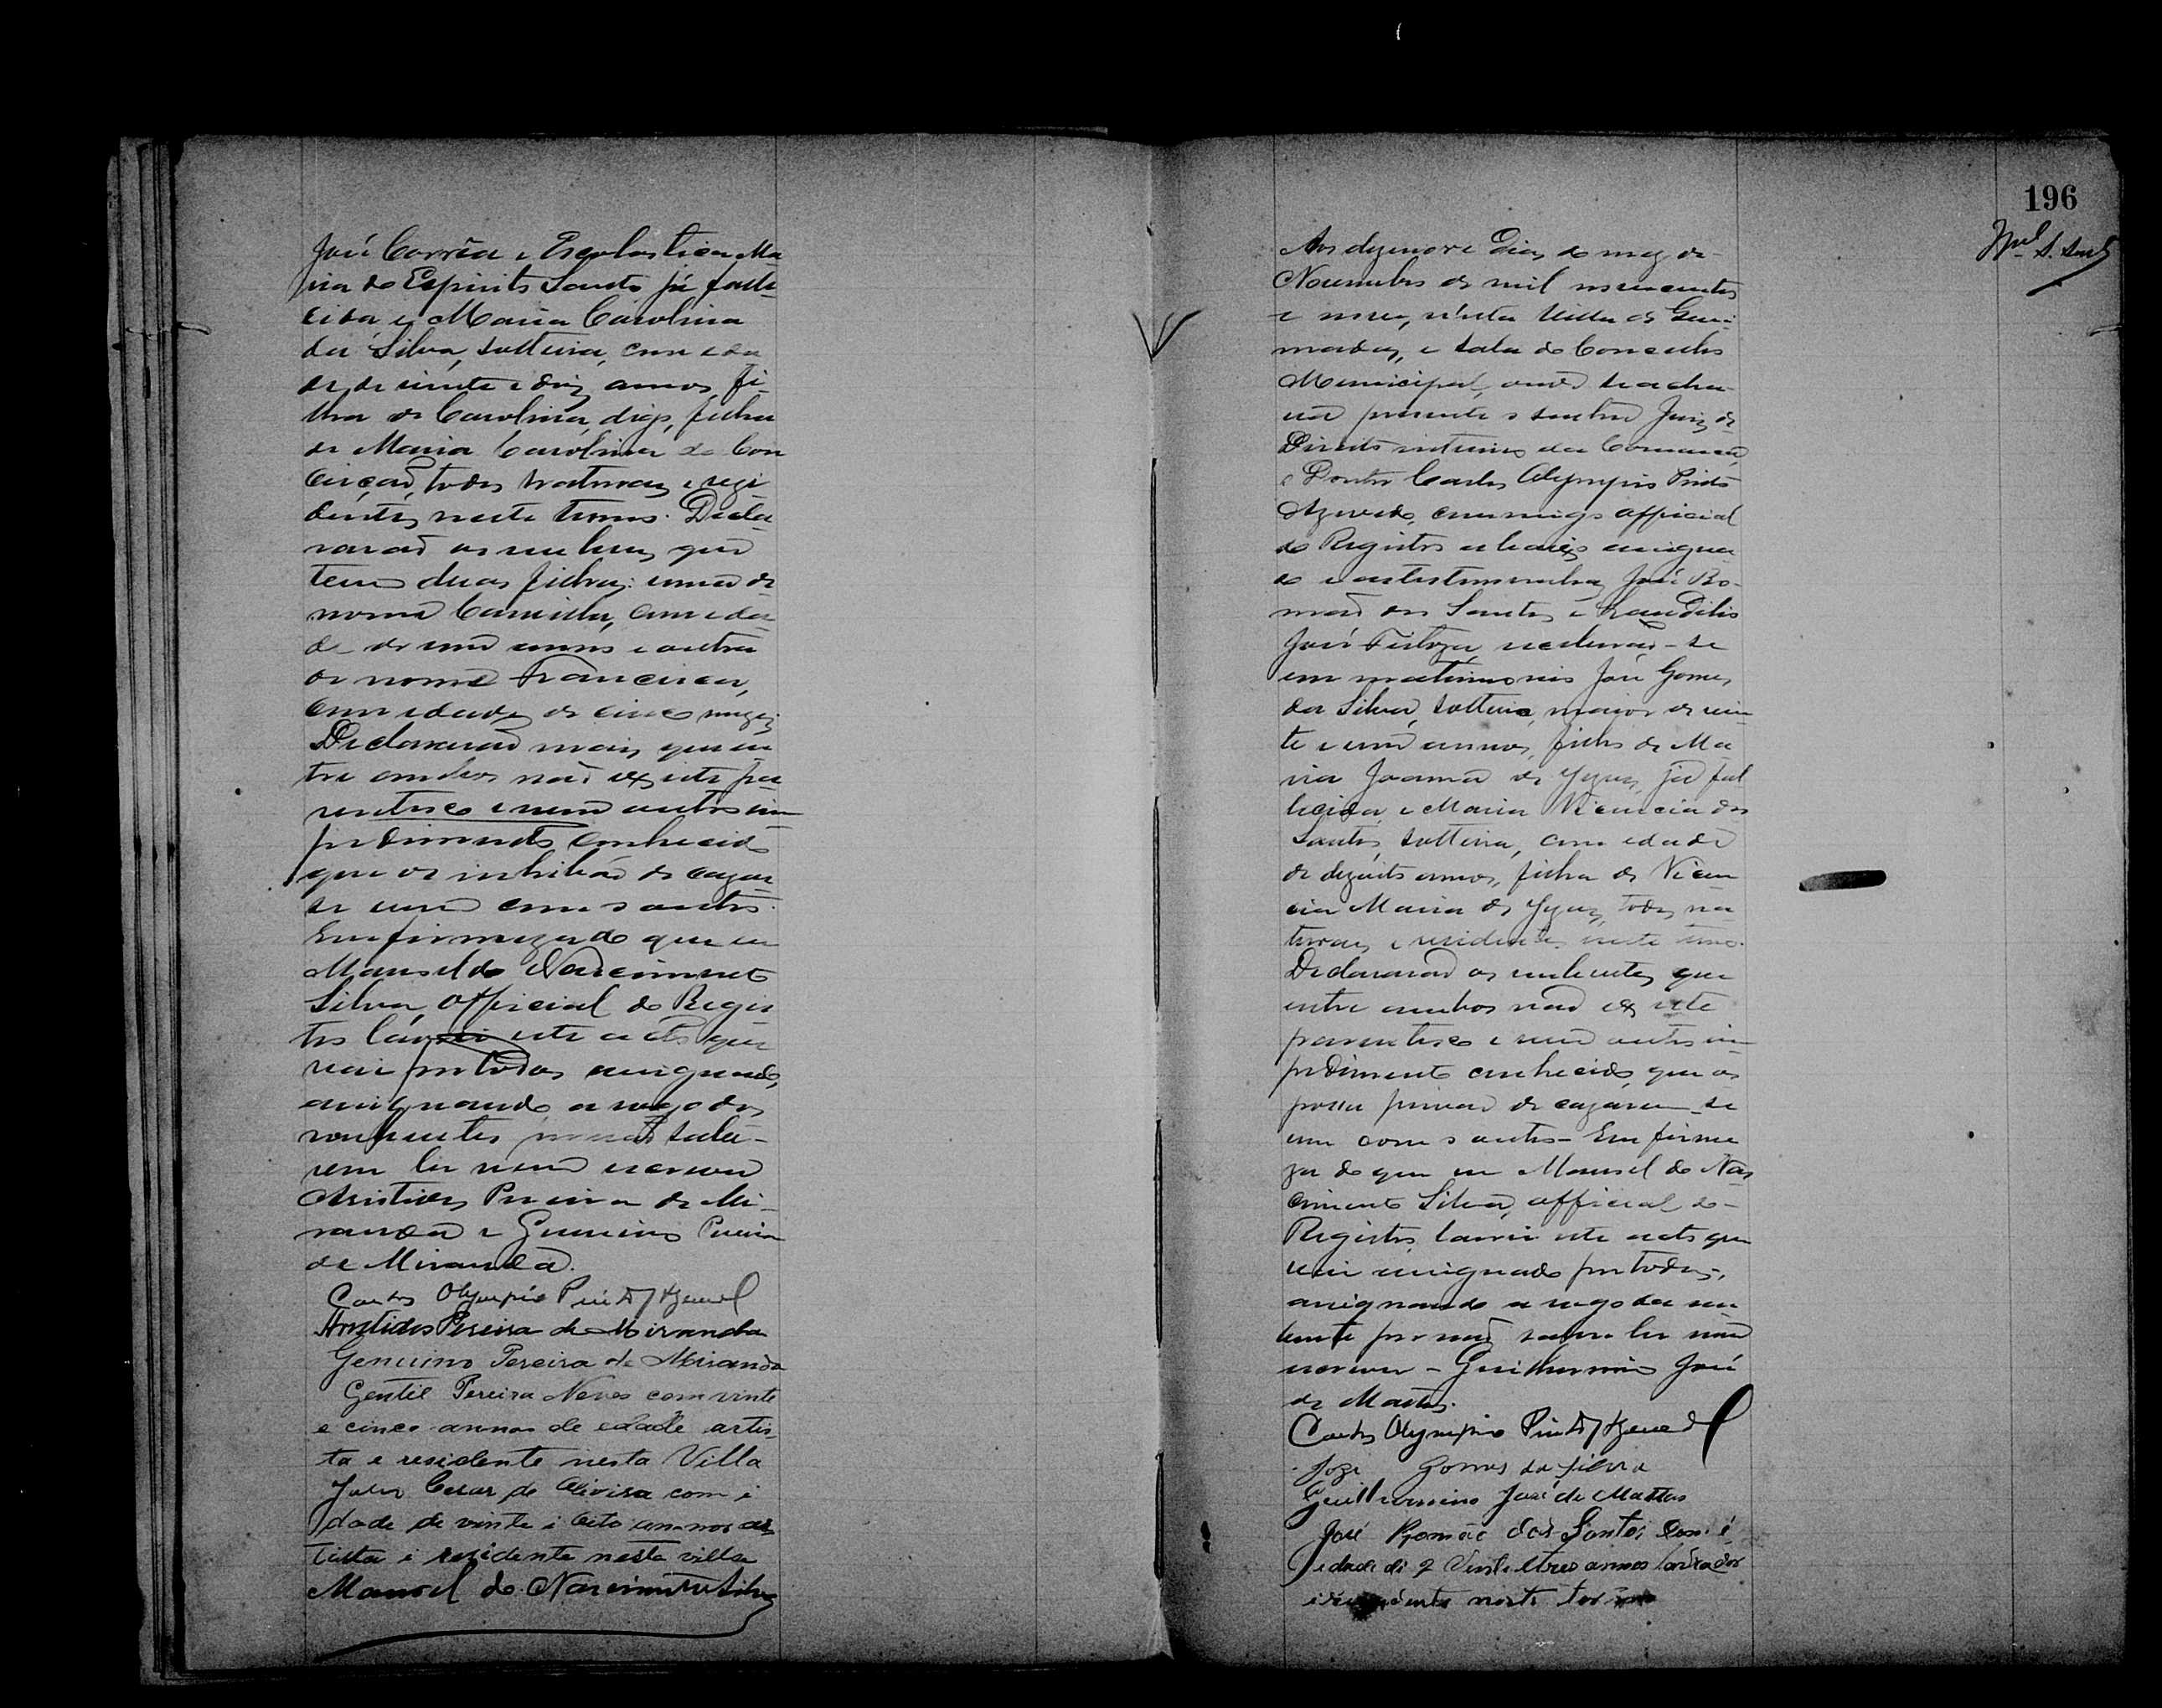 José Corrêa e Escolastica Ma
ria do Espirito Santo já falle
cida, e Maria Carolina
da Silva, solteira, com eda
de, de vinte e dois annos, fi-
lha de Carolina, digo, filha
de Maria Carolina da Con
ceição, todos naturaes e rezi
dentes neste termo. Decla
rarão os nubentes que
tem duas filhas: uma de
nome Camilla, com eda-
de de um anno e outra
de nome Francisca,
com edade de cinco mezes.
Declararão mais que en
tre ambos não existe pa
rentesco e nem outro im
pedimento conhecido
que os inhibão de cazar
se um com o outro.
Em firmeza do que eu
Manoel do Nascimento
Silva, official do Regis
tro lavrei este acto que
vai por todos assignado,
assignando a rogo dos
nubentes por não sabe-
rem ler nem escrever
Aristides Pereira de Mi-
randa e Genuino Pereira
de Miranda.
Carlos Olympio Pinto Azevedo
Aristides Pereira de Miranda
Genuino Pereira de Miranda
Gentil Pereira Neves com vinte
e cinco annos de edade artis
ta e residente nesta Villa
Julio Cesar de Oliveira com i
dade de vinte i oito annos ar
tista i rezidente nesta villa
Manoel do Nascimento Silva
196
Aos dezenove dias do mez de
Novembro de mil novecentos
e nove, n'esta Villa de
e sala do Conselho
Municipal, onde se acha-
va presente o doutor Juiz de
Direito interino da Comarca,
o Doutor Carlos Olympio Pinto
Azevedo, commigo official
do Registro abaixo assigna
do e as testemunhas José Ro-
mão dos Santos e
José receberão-se
em matrimonio José Gomes
da Silva, solteiro, maior de vin
te e um annos, filho de Ma
ria Joanna de Jezus, já fal
lecida, e Maria Vicencia dos
Santos, solteira, com edade
de dezoito annos, filha de Vicen
cia Maria de Jezus, todos na
turaes e residentes neste termo.
Declararão os nubentes que
entre ambos não existe
parentesco e nem outro im
pedimento conhecido, que os
possa privar de cazarem-se
um com o outro - Em firme
za do que eu Manoel do Nas
cimento Silva, official do
Registro, lavrei este acto que
vai assignado por todos,
assignando a rogo da nu
bente por não saber ler nem
escrever - Guilhermino José
de Mattos.
Carlos Olympio Pinto Azevedo
Joze Gomes da Silva
Guilhermino José de Mattos
José Romão dos Santos Com i
dade de 2 Vinte e tres annos lavrador
neste termo